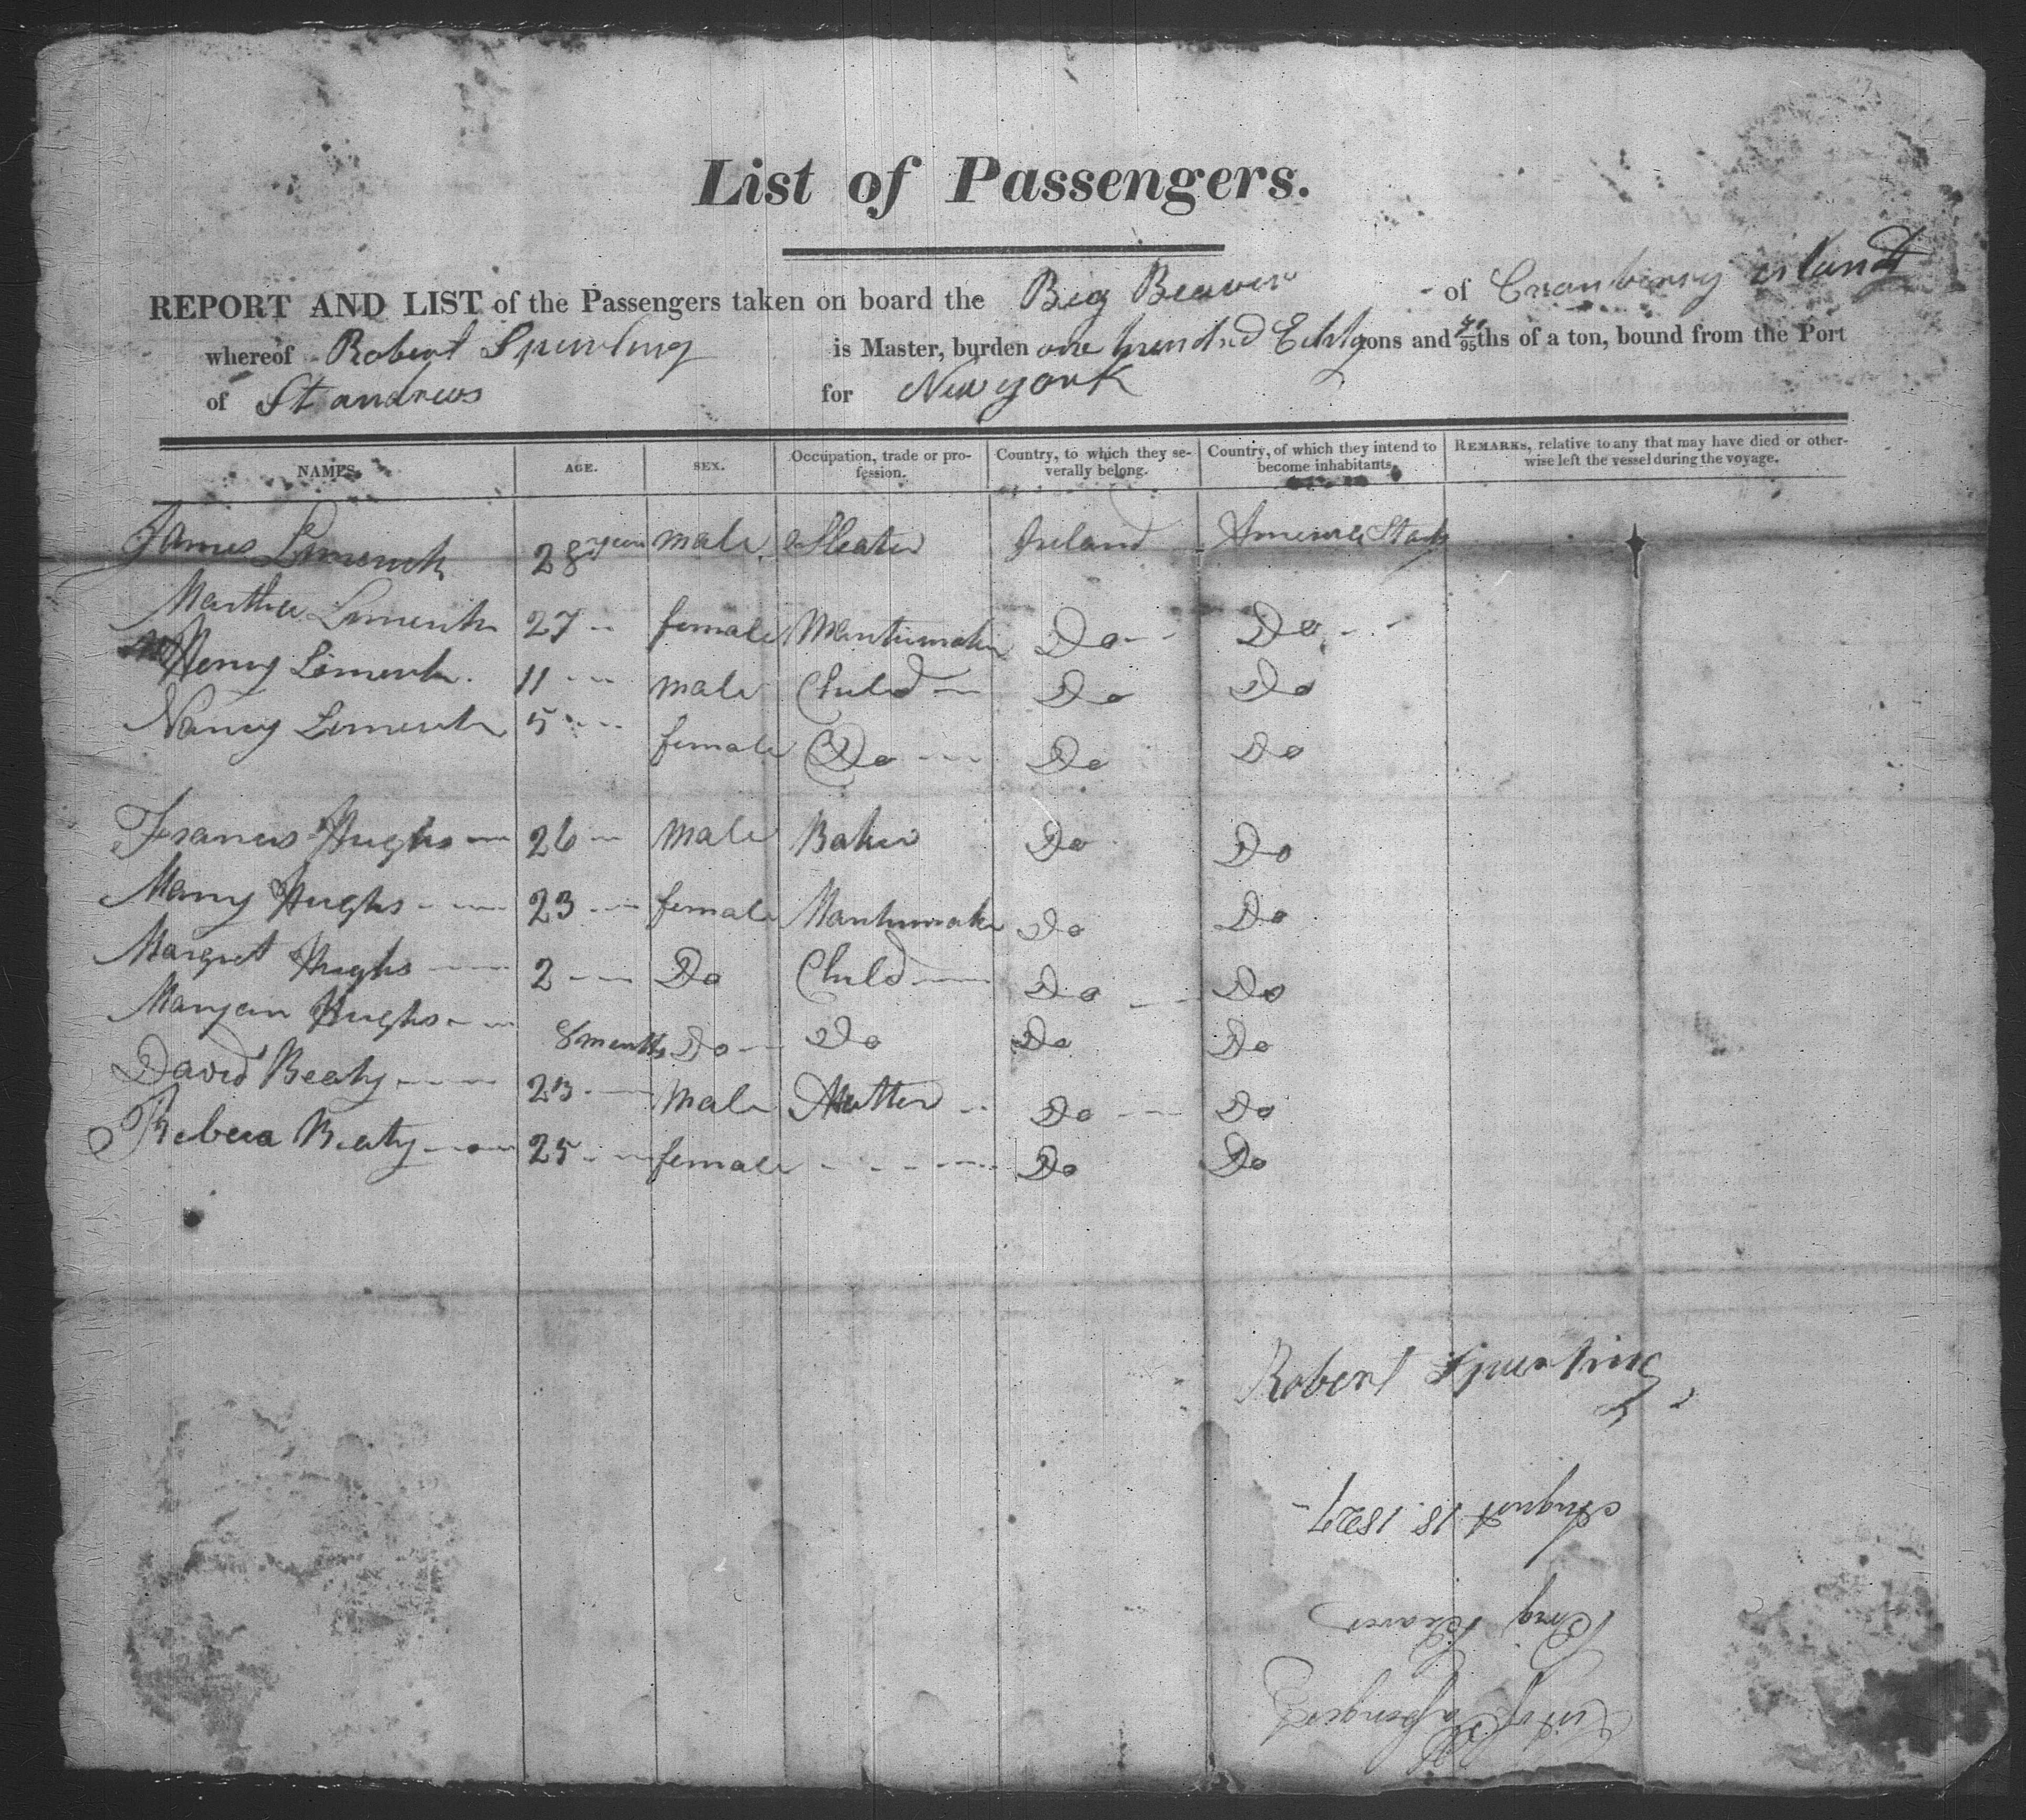 List of Passengers.
REPORT AND LIST of the Passengers taken on board the Big Beaver of Cranberry island
whereof Robert Spurling is Master, burden one hundred tons and 95ths of a ton, bound from the Port
of St andrews for New york
NAMES. AGE. SEX. Occupation, trade or profession. Country, to which they severally belong. Country, of which they intend to become inhabitants. REMARKS, relative to any that may have died or otherwise left the vessel during the voyage.
James 28 years male Ireland States
Martha 27 female Mantumaker Do Do
Henry 11 male Child Do Do
Nancy 5 female Do Do Do
Francis Hughs 26 male Baker Do Do
Marry Hughs 23 female Mantumaker Do Do
Margret Hughs 2 Do Child Do Do
Maryan Hughs 8 months Do Do Do Do
David Beaty 23 male Do Do
Rebeca Beaty 25 female Do Do
Robert Spurling
August 18. 1827
Brig Beaver
List of Passengers